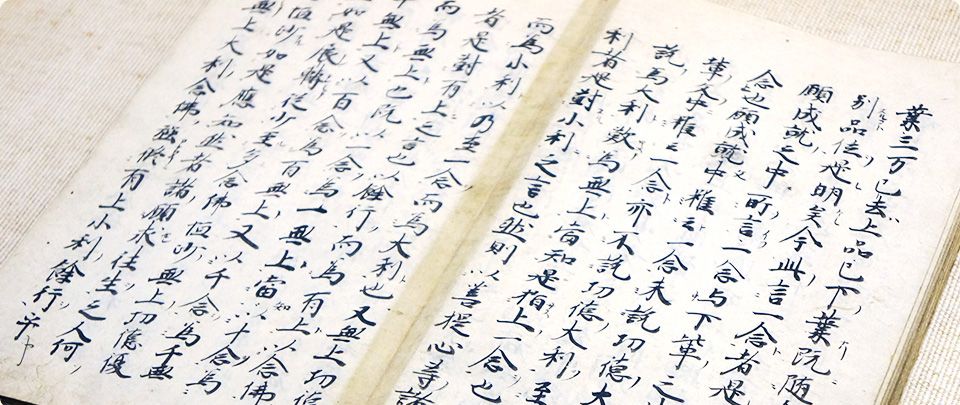 業三万已去上品已下業既随
別品位是明矣今此言一念者是
願成就之中所言一念与下輩之
念也願成就中雖云一念未説功徳大
輩文中雖云一念亦不説功徳大利至
説為大利歎為無上當知是指上一念也
利者是對小利之言也然則以菩提心等諸
而為小利以乃至一念而為大利也又無上功徳
者是對有上之言也以餘行而為有上以念佛
而為無上也既以一念為一無上當知以十念為
無上又以百念為百無上又以千念為千無
如是展轉従少至多念佛恒沙無上功徳
恒沙如是應知然者諸願求往生之人何
無上大利念佛強修有上小利餘行乎